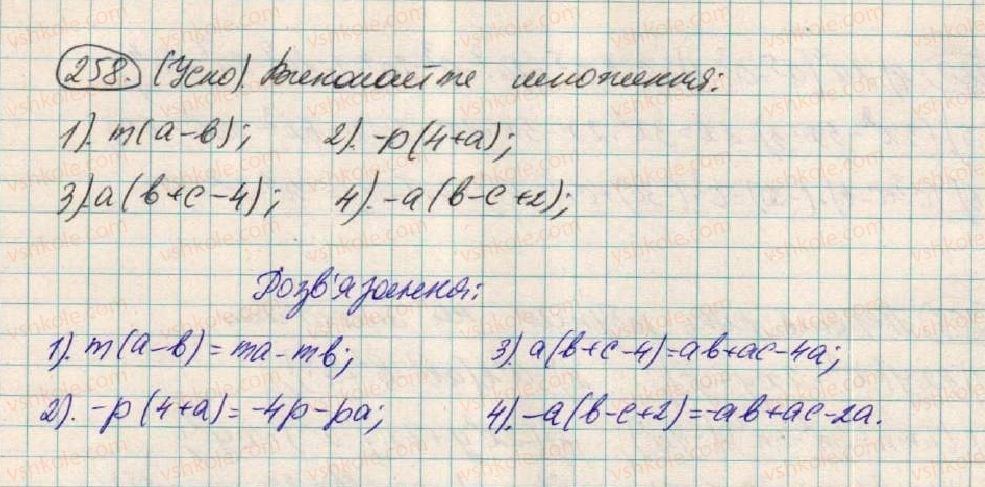 258. (Усно). Виконайте множення:
1). m(a-b); 2). -p(4+a);
3). a(b+c-4); 4). -a(b-c+2);
Розв'язання:
1). m(a-b)=ma-mb; 3). a(b+c-4)=ab+ac-4a;
2). -p(4+a)=-4p-pa; 4). -a(b-c+2)=-ab+ac-2a.
vshkole.com